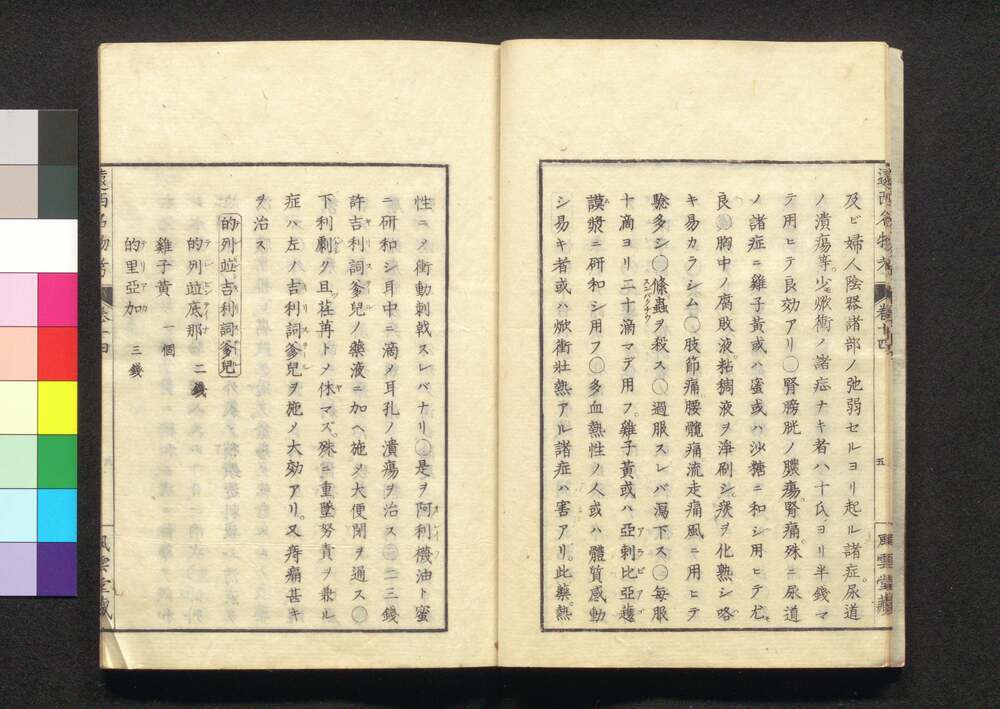 及ビ婦人陰器諸部ノ弛弱セルヨリ起ル諸症尿道
ノ潰瘍等少焮衝ノ諸症ナキ者ハ十氐ヨリ半錢マ
テ用ヒテ良効アリ〇腎膀胱ノ膿瘍腎痛殊ニ尿道
ノ諸症ニ雞子黄或ハ蜜或ハ沙糖ニ和シ用ヒテ尤
良〇胸中ノ腐敗液粘稠液ヲ淨刷シ痰ヲ化熟シ咯
キ易カラシム〇肢節痛腰髖痛流走痛風ニ用ヒテ
驗多シ〇條蟲ヲ殺ス〇過服スレバ瀉下ス〇每服
十滴ヨリ二十滴マデ用フ雞子黄或ハ亞剌比亞護
謨漿ニ研和シ用フ〇多血熱性ノ人或ハ體質感動
シ易キ者或ハ焮衝壯熱アル諸症ハ害アリ此藥熱
遠西名物考 卷十四 五 風雲堂藏
性ニメ衝動刺戟スレバナリ〇是ヲ阿利襪油ト蜜
ニ研和シ耳中ニ滴メ耳孔ノ潰瘍ヲ治ス〇二三錢
許吉利詞爹兒ノ藥液ニ加ヘ施メ大便閉ヲ通ス〇
下利劇ク且荏苒トメ休マズ殊ニ重墜努責ヲ兼ル
症ハ左ノ吉利詞爹兒ヲ施メ大効アリ又痔痛甚キ
ヲ治ス
的列並吉利詞爹兒
的列並底那 二錢
雞子黄 一個
的里亞加 三錢
遠西名物考 風雲堂藏